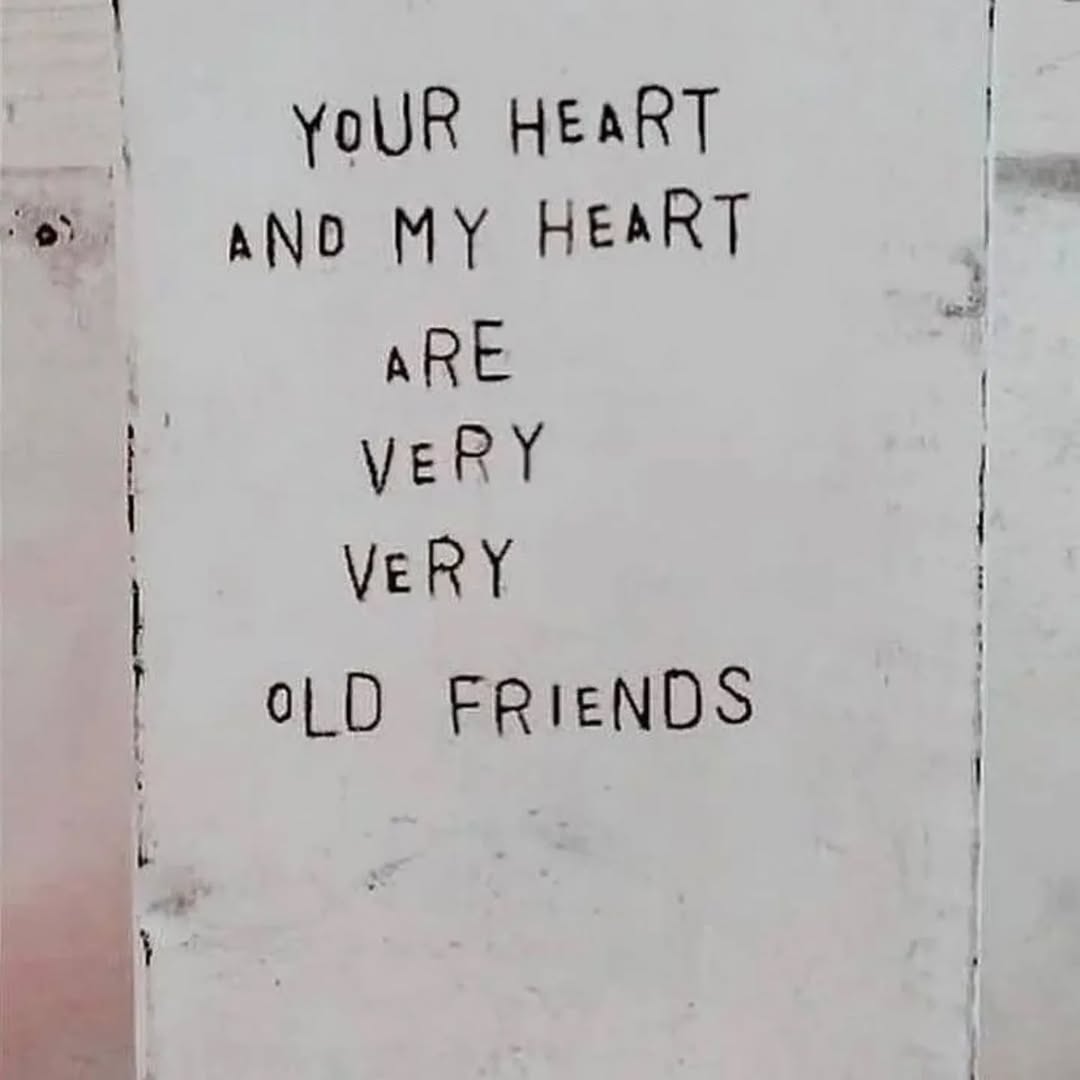 YOUR HEART
AND MY HEART
ARE
VERY
VERY
OLD FRIENDS